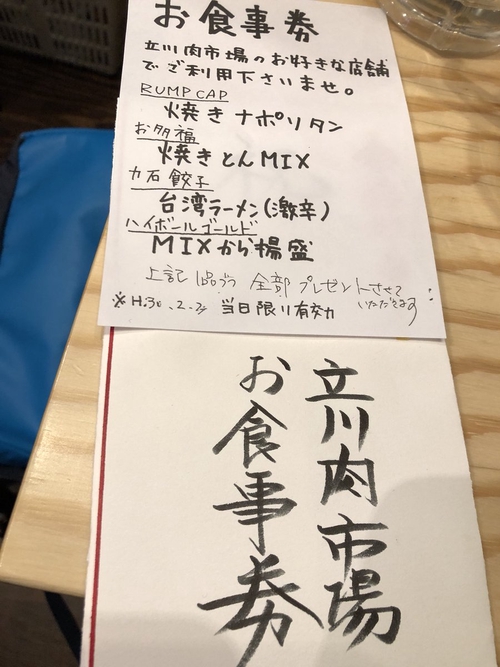 お食事券
立川肉市場のお好きな店舗
でご利用下さいませ。
RUMP CAP
焼きナポリタン
お多福
焼きとんMIX
力石餃子
台湾ラーメン(激辛)
ハイボールゴールド
MIXから揚盛
上記1品づつ 全部プレゼントさせて
いただきます
※H.30.2.
当日限り有効
立川肉市場
お食事券